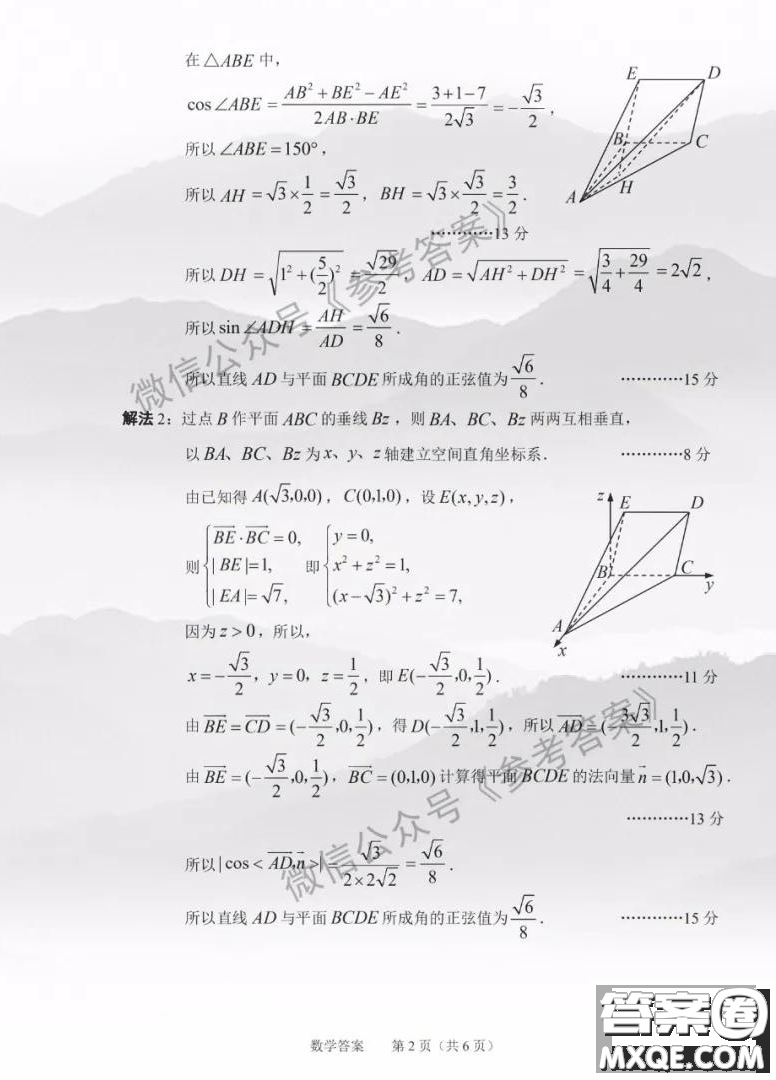 在△ABE中，
cos∠ABE = (AB² + BE² − AE²)/(2AB·BE) = (3+1−7)/(2√3) = −√3/2，
所以∠ABE=150°，
所以 AH = √3×1/2 = √3/2，BH = √3×√3/2 = 3/2．
…………13 分
所以 DH = √(1²+(5/2)²) = √29/2，AD = √(AH²+DH²) = √(3/4+29/4) = 2√2，
所以 sin∠ADH = AH/AD = √6/8．
所以直线 AD 与平面 BCDE 所成角的正弦值为 √6/8．…………15 分
解法 2：过点 B 作平面 ABC 的垂线 Bz，则 BA、BC、Bz 两两互相垂直，
以 BA、BC、Bz 为 x、y、z 轴建立空间直角坐标系．…………8 分
由已知得 A(√3,0,0)，C(0,1,0)，设 E(x,y,z)，
则 { BE→·BC→=0, |BE|=1, |EA|=√7, 即 { y=0, x²+z²=1, (x−√3)²+z²=7,
因为 z>0，所以，
x=−√3/2，y=0，z=1/2，即 E(−√3/2,0,1/2)．…………11 分
由 BE→=CD→=(−√3/2,0,1/2)，得 D(−√3/2,1,1/2)，所以 AD→=(−3√3/2,1,1/2)．
由 BE→=(−√3/2,0,1/2)，BC→=(0,1,0) 计算得平面 BCDE 的法向量 n→=(1,0,√3)．
…………13 分
所以 |cos<AD→,n→>| = √3/(2×2√2) = √6/8．
所以直线 AD 与平面 BCDE 所成角的正弦值为 √6/8．…………15 分
E
D
B
C
A
H
z
E
D
B
C
y
A
x
微信公众号《参考答案》
微信公众号《参考答案》
数学答案 第 2 页（共 6 页）
答案圈
MXQE.COM